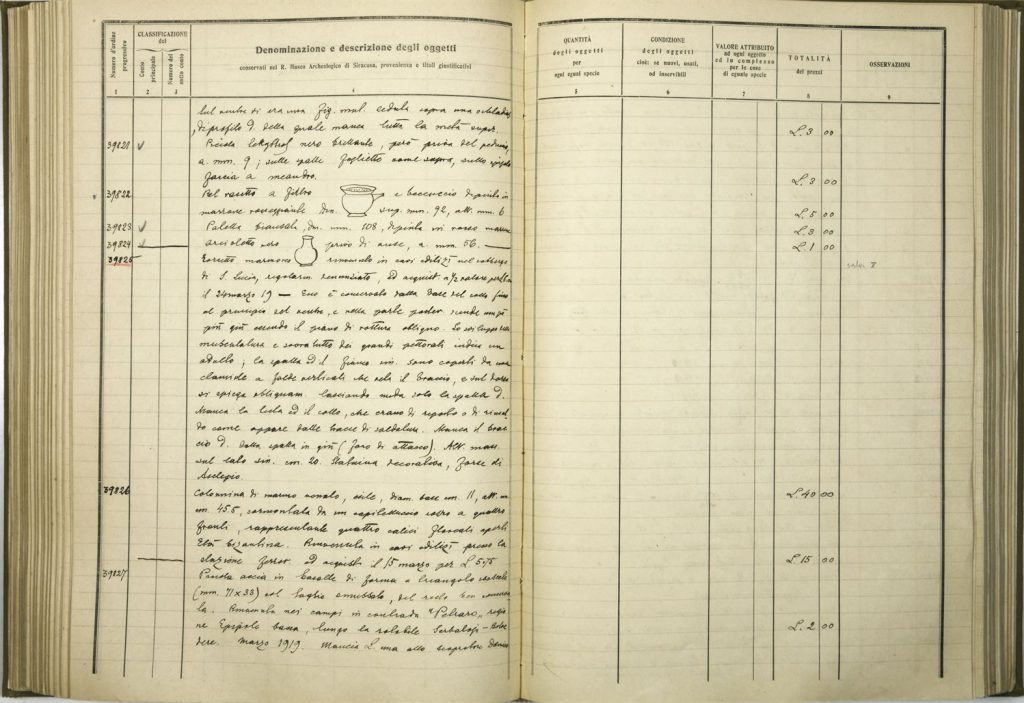 Numero d'ordine progressivo
CLASSIFICAZIONE del
Conto principale
Numero del sotto conto
Denominazione e descrizione degli oggetti
conservati nel R. Museo Archeologico di Siracusa, provenienza e titoli giustificativi
1 2 3 4
QUANTITÀ degli oggetti per ogni egual specie
CONDIZIONE degli oggetti cioè: se nuovi, usati, od inservibili
VALORE ATTRIBUITO ad ogni oggetto ed in complesso per le cose di eguale specie
TOTALITÀ dei prezzi
OSSERVAZIONI
5 6 7 8 9
sul ventre di era una fig. mul. seduta sopra una
di profilo d. della quale manca tutta la metà super. L. 3 00
39821 Piccola lekythos nero brillante, però priva del peduccio,
a. mm. 9 ; sulle spalle foglietto come sopra, sullo
fascia a meandro. L. 3 00
39822 Bel vasetto a filtro e beccuccio dipinto in
marrone rosseggiante dm. sup. mm. 92, alt. mm. 6 L. 5 00
39823 Paletta biansata, dm. mm. 108, dipinta in rosso marrone L. 3 00
39824 orcioletto nero privo di anse, a. mm. 56. L. 1 00
39825 Torsetto marmoreo rinvenuto in cavi edilizi nel
di S. Lucia, regolarm. denunciato, ed acquist. a 1/2 valore
il 24 marzo 19 — Esso è conservato dalla base del collo fino
al principio del ventre, e nella parte poster. scende un po'
più giù secondo il piano di rottura obliquo. Lo sviluppo della
muscolatura e sovratutto dei grandi pettorali indica un
adulto ; la spalla ed il fianco sin. sono coperti da una
clamide a falde verticali che vela il braccio, e sul dorso
si spiega obliquam. lasciando nuda solo la spalla d.
Manca la testa ed il collo, che erano di riporto o di
come appare dalle tracce di saldatura. Manca il brac-
cio d. dalla spalla in giù (foro di attacco). Alt. mass.
sul lato sin. cm 20. Statuina decorativa, forse di
Asclepio.
39826 Colonnina di marmo venato, esile, diam. base cm. 11, alt.
cm. 45.5, sormontata da un capitelluccio a quattro L. 40 00
fronti, rappresentante quattro calici floreali aperti
Età bizantina. Rinvenuta in cavi edilizi presso la
stazione ferrov. ed acquist. il 15 marzo per L. L. 15 00
39827 Piccola ascia in basalte di forma a triangolo
(mm. 71 x 33) col taglio smussato, del resto ben conserva-
ta. Rinvenuta nei campi in contrada "Petraro", regio-
ne Epipole bassa, lungo la rotabile - Belve- L. 2 00
dere. Marzo 1919. Mancia L. una allo scopritore